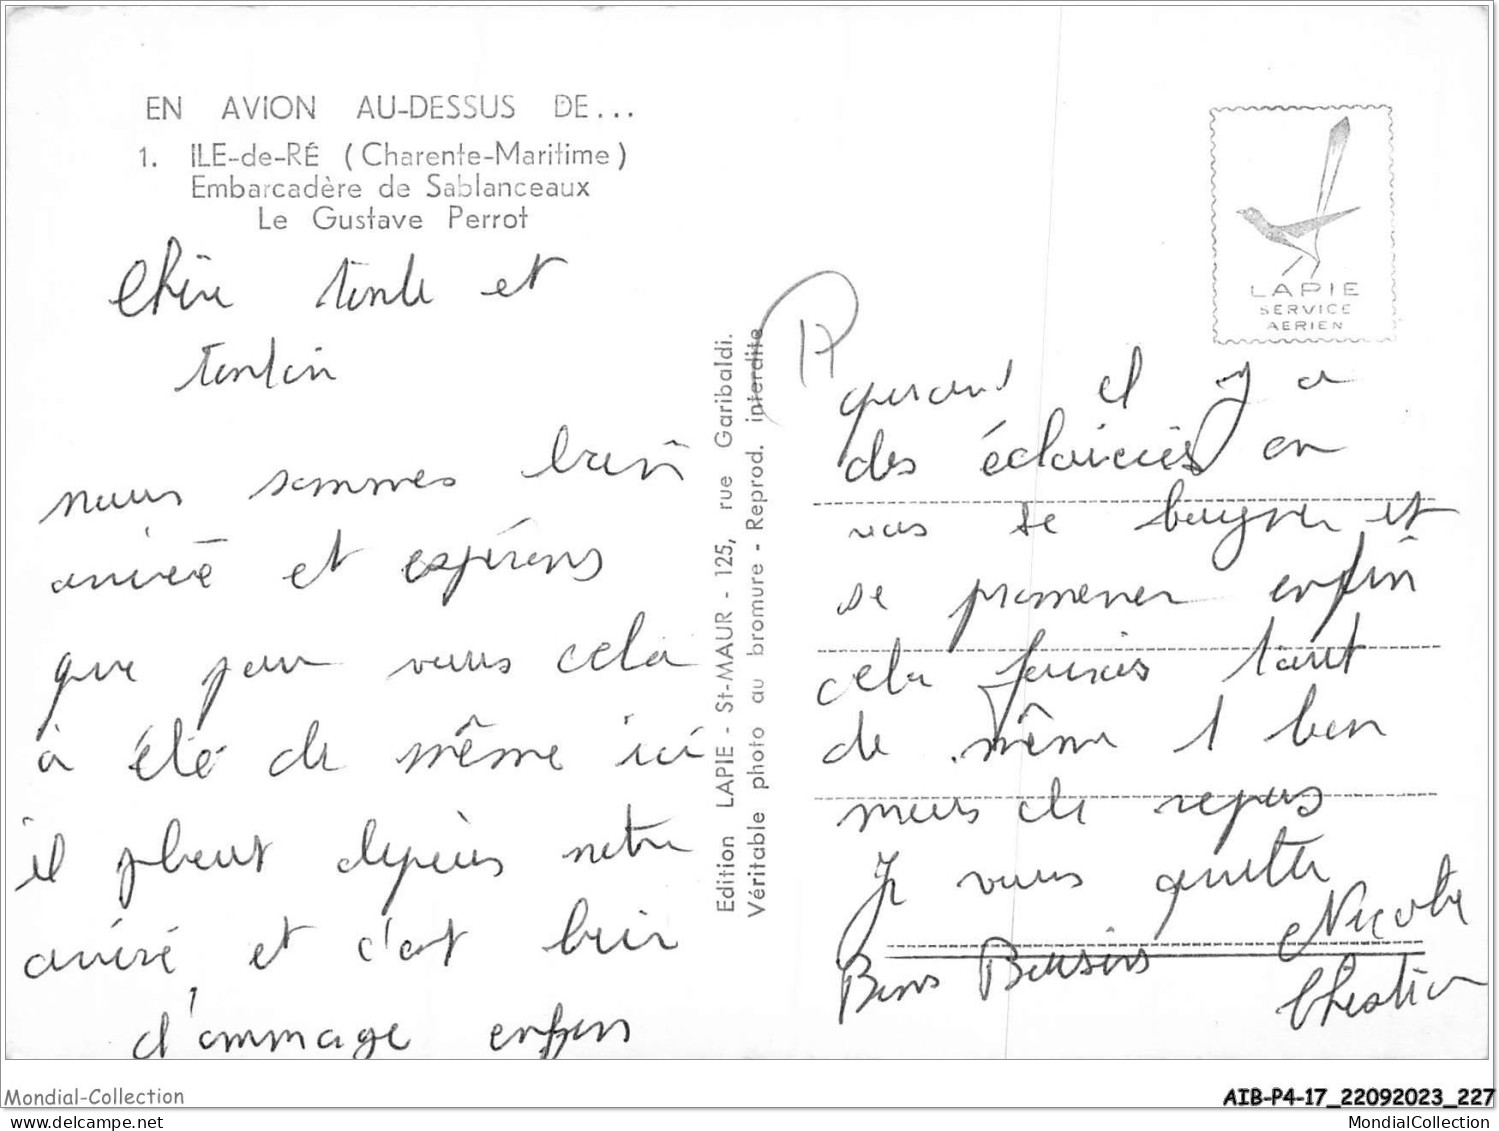 EN AVION AU-DESSUS DE...
1. ILE-de-RÉ (Charente-Maritime)
Embarcadère de Sablanceaux
Le Gustave Perrot
Chère tente et
tonton
nous sommes bien
arrivée et espérons
que pour vous cela
à été de même ici
il pleut depuis notre
arrivé et c'est bien
d'ommage enfin
Edition LAPIE - St-MAUR - 125, rue Garibaldi.
Véritable photo au bromure - Reprod. interdite
LAPIE
SERVICE
AERIEN
quand il y a
des éclaircies on
vas se baigner et
se promener enfin
cela faisis tout
de même 1 bon
mois de repos
Je vous quitte
Bons Baisirs
Nicole
Christian
Mondial-Collection
AIB-P4-17_22092023_227
MondialCollection